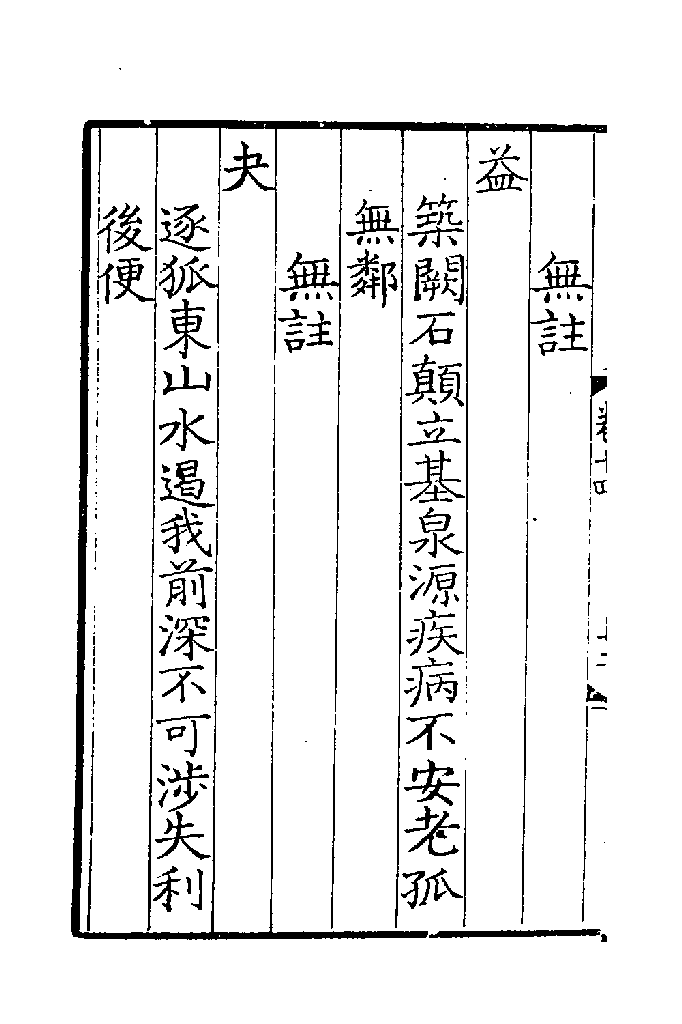 無註
益
築闕石顛立基泉源疾病不安老孤
無鄰
無註
夬
逐狐東山水遏我前深不可涉失利
後便